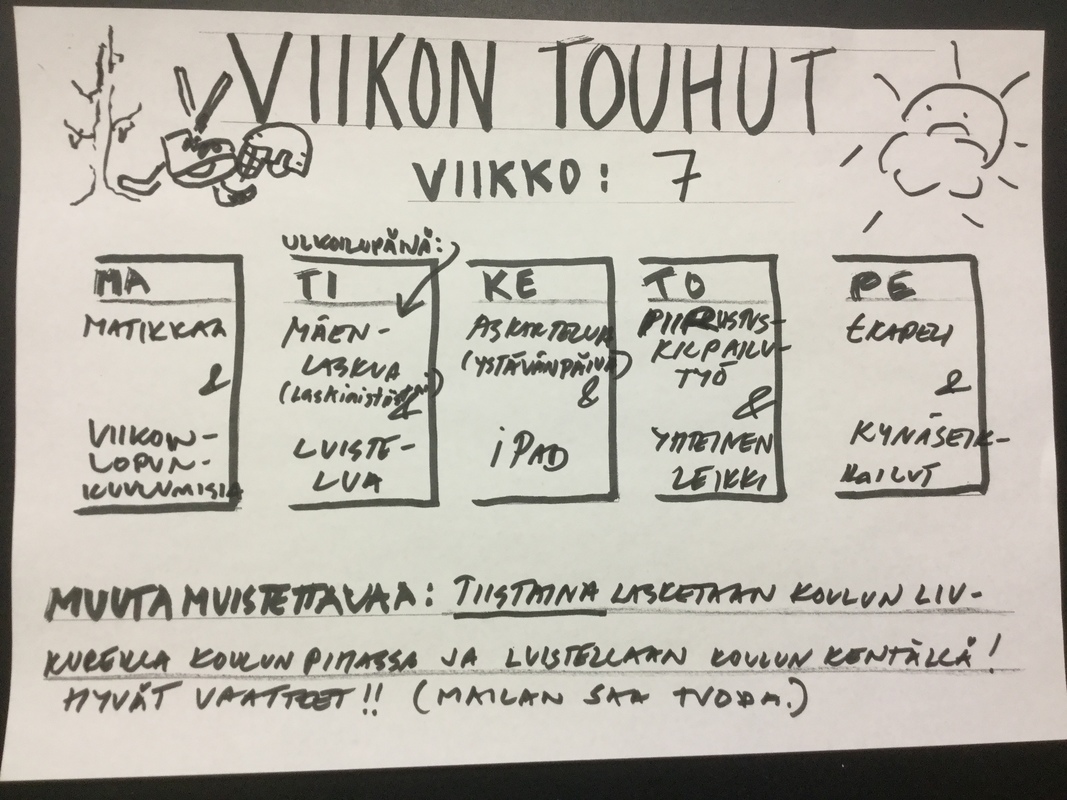 VIIKON TOUHUT
VIIKKO: 7
ULKOILUPÄIVÄ:
MA
MATIKKAA
&
VIIKON-
LOPUN-
KUULUMISIA
TI
MÄEN-
LASKUA
(Laskimistä
&
LUISTE-
LUA
KE
ASKARTELUA
(YSTÄVÄNPÄIVÄ)
&
iPAD
TO
PIIRUSTUS-
KILPAILU-
TYÖ
&
YHTEINEN
LEIKKI
PE
EKAPELI
&
KYNÄSEIK-
KAILUT
MUUTA MUISTETTAVAA: TIISTAINA LASKETAAN KOULUN LIU-
KUREILLA KOULUN PIHASSA JA LUISTELLAAN KOULUN KENTÄLLÄ!
HYVÄT VAATTEET!! (MAILAN SAA TUODA.)